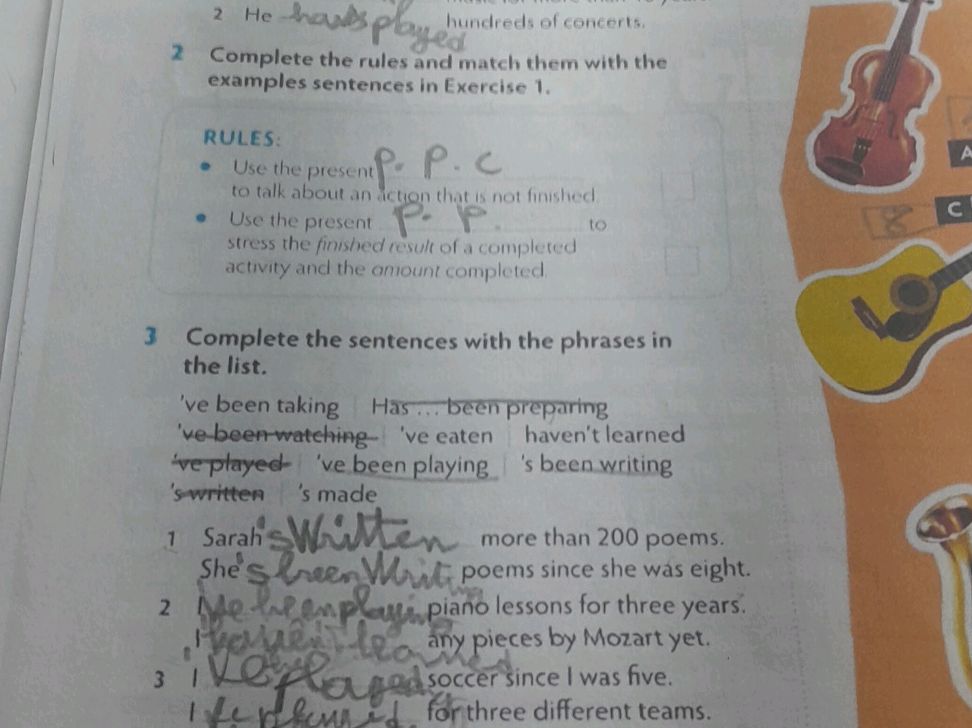 2 He played hundreds of concerts.
2 Complete the rules and match them with the
examples sentences in Exercise 1.
RULES:
• Use the present P. P. C
to talk about an action that is not finished.
• Use the present P. P. to
stress the finished result of a completed
activity and the amount completed.
3 Complete the sentences with the phrases in
the list.
've been taking | Has ... been preparing
've been watching | 've eaten | haven't learned
've played | 've been playing | 's been writing
's written | 's made
1 Sarah's Written more than 200 poems.
She's been poems since she was eight.
2 I've been playing piano lessons for three years.
I haven't learned any pieces by Mozart yet.
3 I 've played soccer since I was five.
I for three different teams.
A
8 C